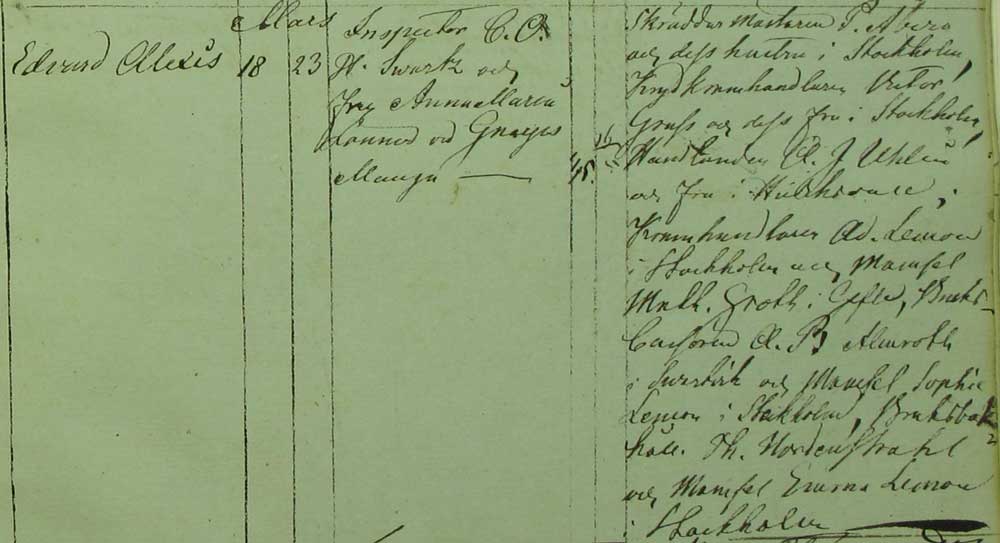 Mars
Edvard Alexis 18 23
Inspector C. A.
H. Swartz och
Fru Anna Maria
Lönned vid Gnesjö
45.
Skräddar Mästaren P. Åberg
och dess hustru i Stockholm,
Krydkramhandlaren Victor
och dess fru i Stockholm,
Handlanden A. J. Uhlin
och fru i
Kramhandlaren Ad. Lemon
i Stockholm och Mamsell
Math. Groth i Gefle, Bruks
A. P. Almroth
i och Mamsell Sophie
Lemon i Stockholm, Bruksbok
håll. Th. Nordenstrahl
och Mamsell Emma Lemon
i Stockholm